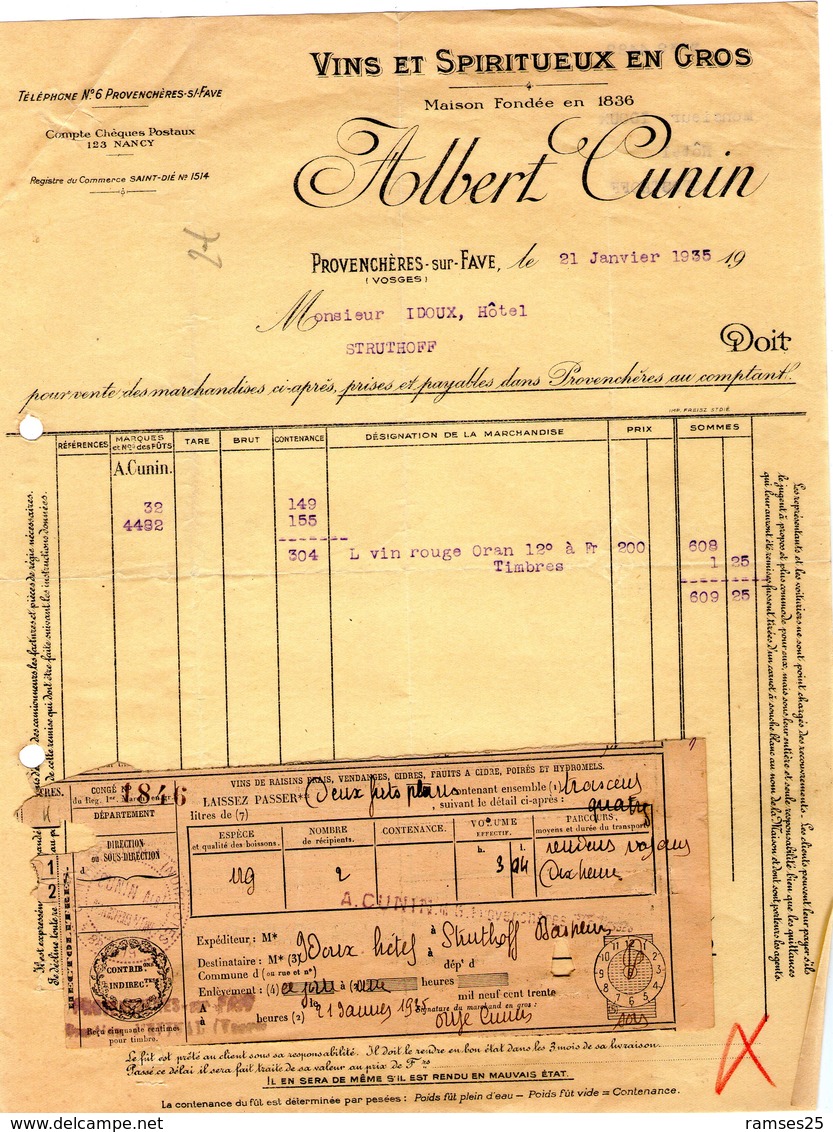 VINS ET SPIRITUEUX EN GROS
TÉLÉPHONE Nº 6 PROVENCHÈRES-S/-FAVE
Maison Fondée en 1836
Compte Chèques Postaux
123 NANCY
Albert Cunin
Registre du Commerce SAINT-DIÉ Nº 1514
PROVENCHÈRES-SUR-FAVE, le 21 Janvier 1935 19
(VOSGES)
Monsieur IDOUX, Hôtel
STRUTHOFF
Doit
pour vente des marchandises ci-après, prises et payables dans Provenchères au comptant.
IMP. FREISZ ST-DIÉ
RÉFÉRENCES MARQUES et Nos des FÛTS TARE BRUT CONTENANCE DÉSIGNATION DE LA MARCHANDISE PRIX SOMMES
A. Cunin.
32 149
4482 155
304 L vin rouge Oran 12º à Fr 200 608
Timbres 1 25
609 25
Les représentants et les voituriers ne sont point chargés des recouvrements. Les clients peuvent leur payer s'ils
le jugent à propos et plus commode pour eux, mais sous leur entière et seule responsabilité bien que les quittances
qui leur auront été remises fussent tirées d'un carnet à souche blanc au nom de la Maison et dont sont porteurs les agents.
des camionneurs les factures et pièces de régie nécessaires.
de cette remise qui doit être faite suivant les instructions données.
Il est expressément
Je décline toute
CONGÉ N
du Reg. 1er
1846
DÉPARTEMENT
DIRECTION
ou SOUS-DIRECTION
d
1
2
VINS DE RAISINS FRAIS, VENDANGES, CIDRES, FRUITS A CIDRE, POIRÉS ET HYDROMELS.
LAISSEZ PASSER deux fûts pleins contenant ensemble (1) trois cent
litres de (7) , suivant le détail ci-après : quatre
ESPÈCE et qualité des boissons. NOMBRE de récipients. CONTENANCE. VOLUME EFFECTIF. PARCOURS, moyens et durée du transport
h. l.
2 3 04
A. CUNIN
Expéditeur : M*
Destinataire : M* (3) Idoux hôtel à Struthoff
Commune d (ou rue et n°) dépt d
Enlèvement : (4) ce jour à heures
mil neuf cent trente
A le
à heures (2) 21 Janvier 1935
Signature du marchand en gros :
CONTRIBons
INDIRECTes
Reçu cinquante centimes
pour timbre.
12 1 2 3 4 5 6 7 8 9 10 11
Le fût est prêté au client sous sa responsabilité. Il doit le rendre en bon état dans les 3 mois de sa livraison.
Passé ce délai il sera fait traite de sa valeur au prix de Frs
IL EN SERA DE MÊME S'IL EST RENDU EN MAUVAIS ÉTAT.
La contenance du fût est déterminée par pesées : Poids fût plein d'eau — Poids fût vide = Contenance.
ramses25